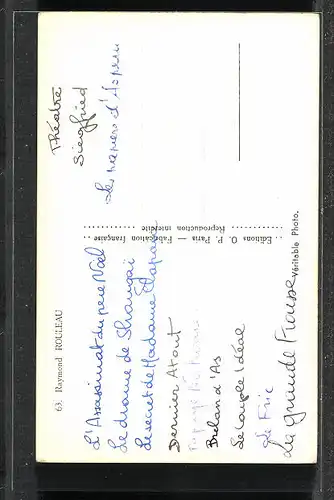 63. Raymond ROULEAU
L'Assassinat du père Noël
Le drame de Shangaï
Le secret de Madame
Dernier Atout
Brelan d'As
Le couple Idéal
Le Fric
La grande Frousse
Editions O. P. Paris — Fabrication française
Reproduction interdite
Théatre
Siegfried
Les papiers d'Aspern
Véritable Photo.